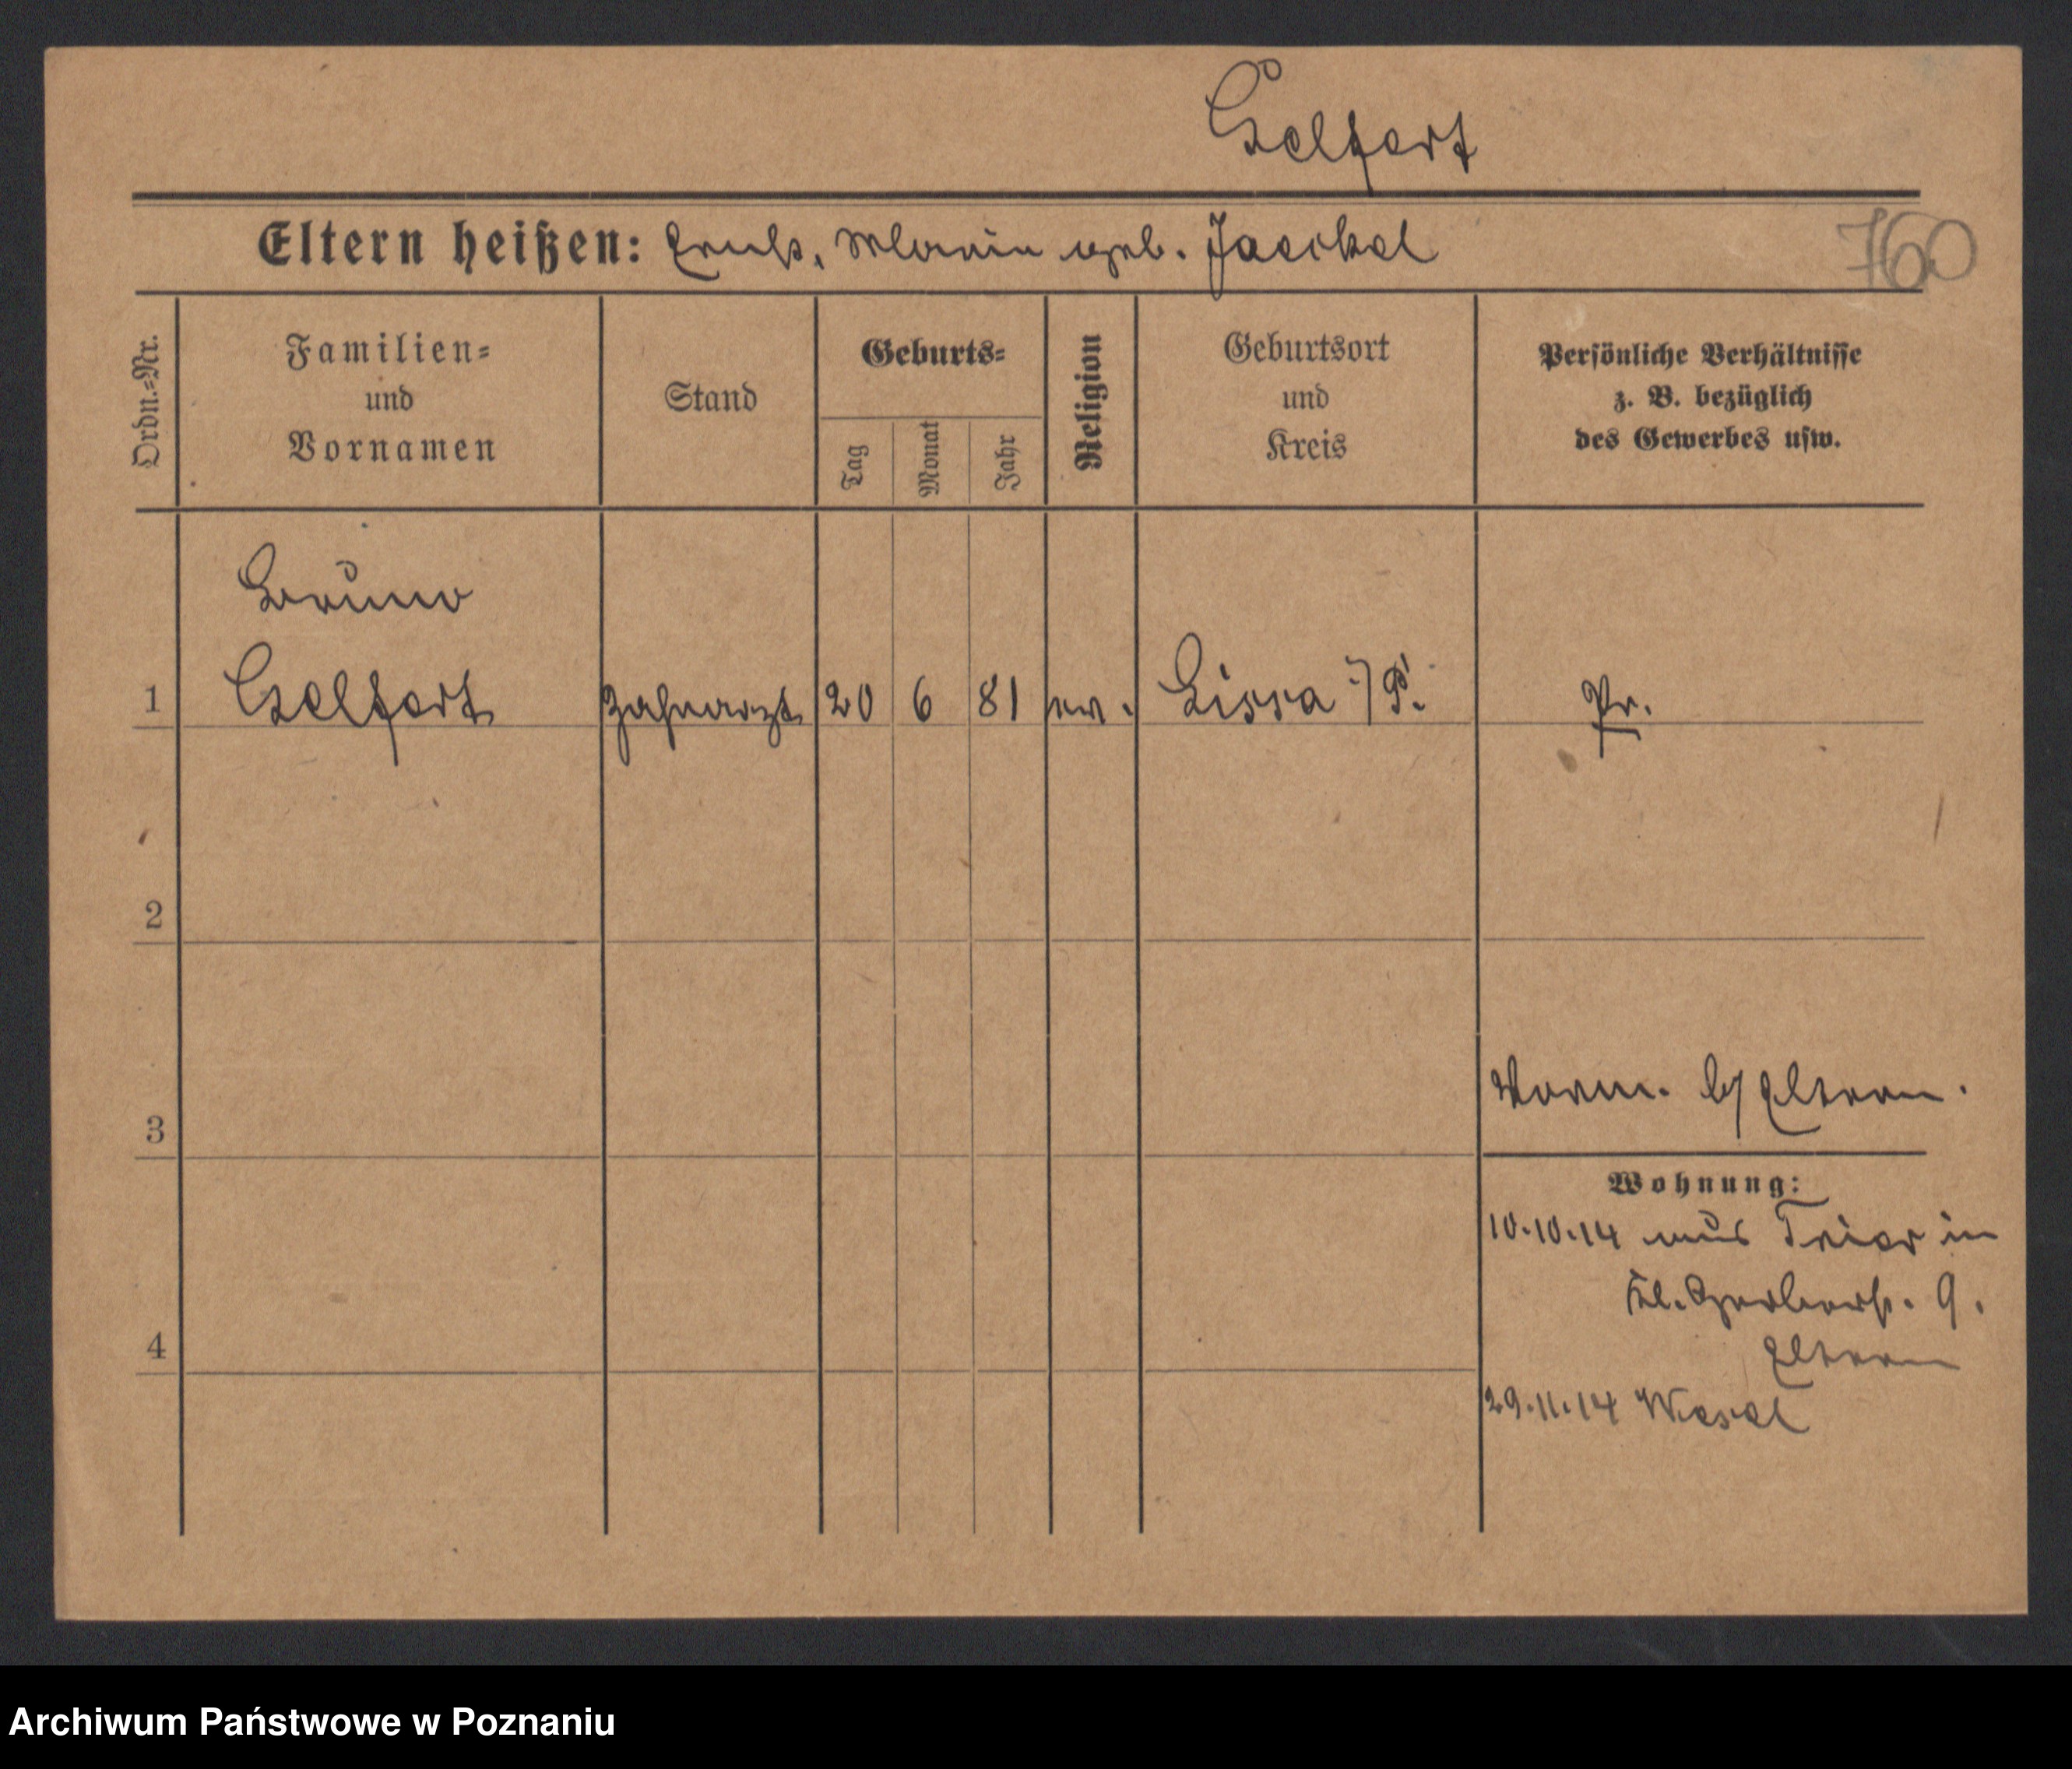 Gelfert
Eltern heißen: Ernst, Marie geb. Jaeckel
760
Ordn.-Nr.
Familien-
und
Vornamen
Stand
Geburts-
Tag
Monat
Jahr
Religion
Geburtsort
und
Kreis
Persönliche Verhältnisse
z. B. bezüglich
des Gewerbes usw.
Bruno
1 Gelfert Zahnarzt 20 6 81 ev. Lissa i/P. Pr.
2
Vorm. b/ Eltern.
3
Wohnung:
10.10.14 aus Trier in
Kl. Gerberstr. 9.
4
Eltern
29.11.14 Wesel
Archiwum Państwowe w Poznaniu